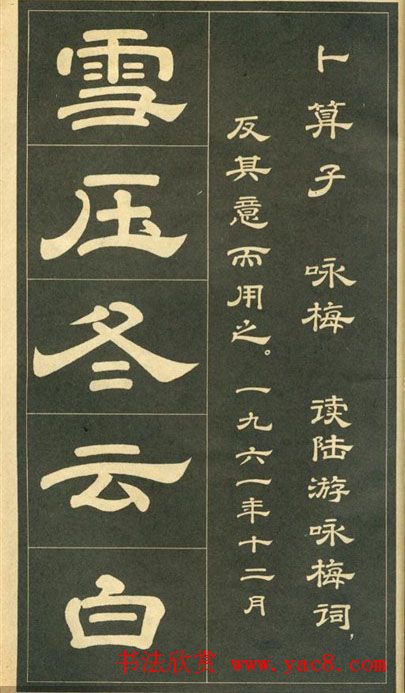 卜算子 咏梅 读陆游咏梅词，
反其意而用之。一九六一年十二月
雪压冬云白
书法欣赏 www.yac8.com